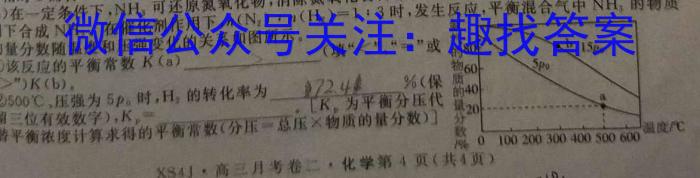 )在一定条件下,NH₃可还原氮氧化物,消除氮氧化物
:3时,发生反应,平衡混合气中NH₃的物质
下合成N
的量分数随
)该反应的平衡常数K(a)
"="或
">")K(b)。
②500℃、压强为5p₀时,H₂的转化率为 72.4 %(保
留三位有效数字),Kₚ= 。[Kₚ为平衡分压代
替平衡浓度计算求得的平衡常数(分压=总压×物质的量分数)]
微信公众号关注:趣找答案
物质的量分数/%
80
60
40
20
0 100 200 300 400 500 600 温度/℃
5p₀
15p₀
a
XS4J·高三月考卷二·化学第4页(共4页)